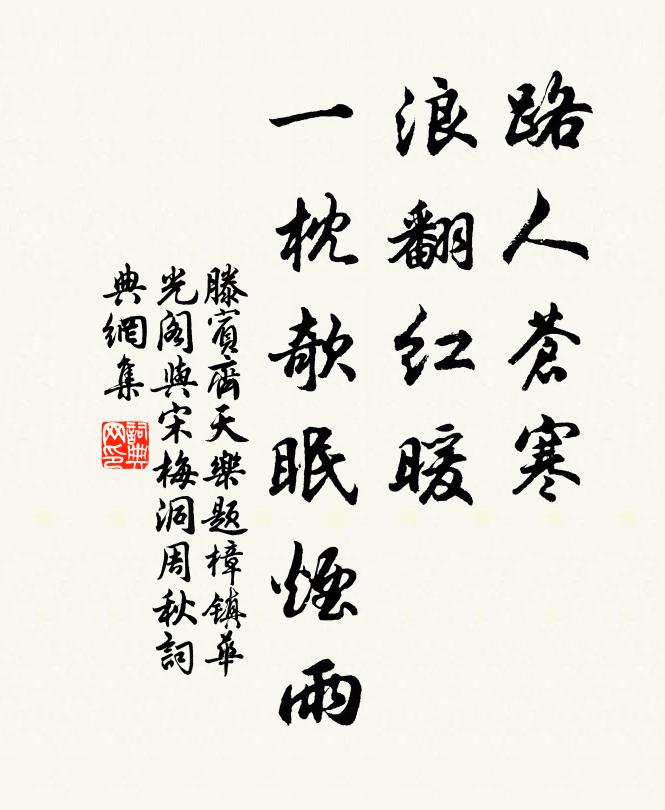 路人蒼寒
浪翻紅暖
一枕欹眠煙雨
滕賓齊天樂題樟鎮華
光閣與宋梅洞周秋詞
典網集
詞典
网印